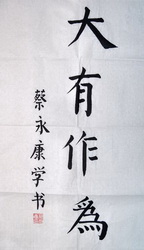 大有作為
蔡永康学书